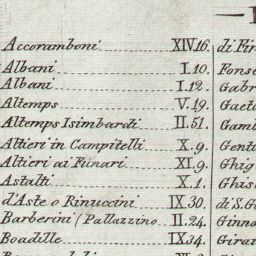 Accoramboni XIV.16. di Fir
Albani I.10. Fonse
Albani I.12. Gabr
Altemps V.19. Gaeta
Altemps Isimbardi II.51. Gamb
Altieri in Campitelli X.9. Genti
Altieri ai Funari XI.9. Ghig
Astalti X.1. Ghis
d'Aste o Rinuccini IX.30. di S.G
Barberini (Palazzino II.24. Ginna
Boadille IX.34. Girau